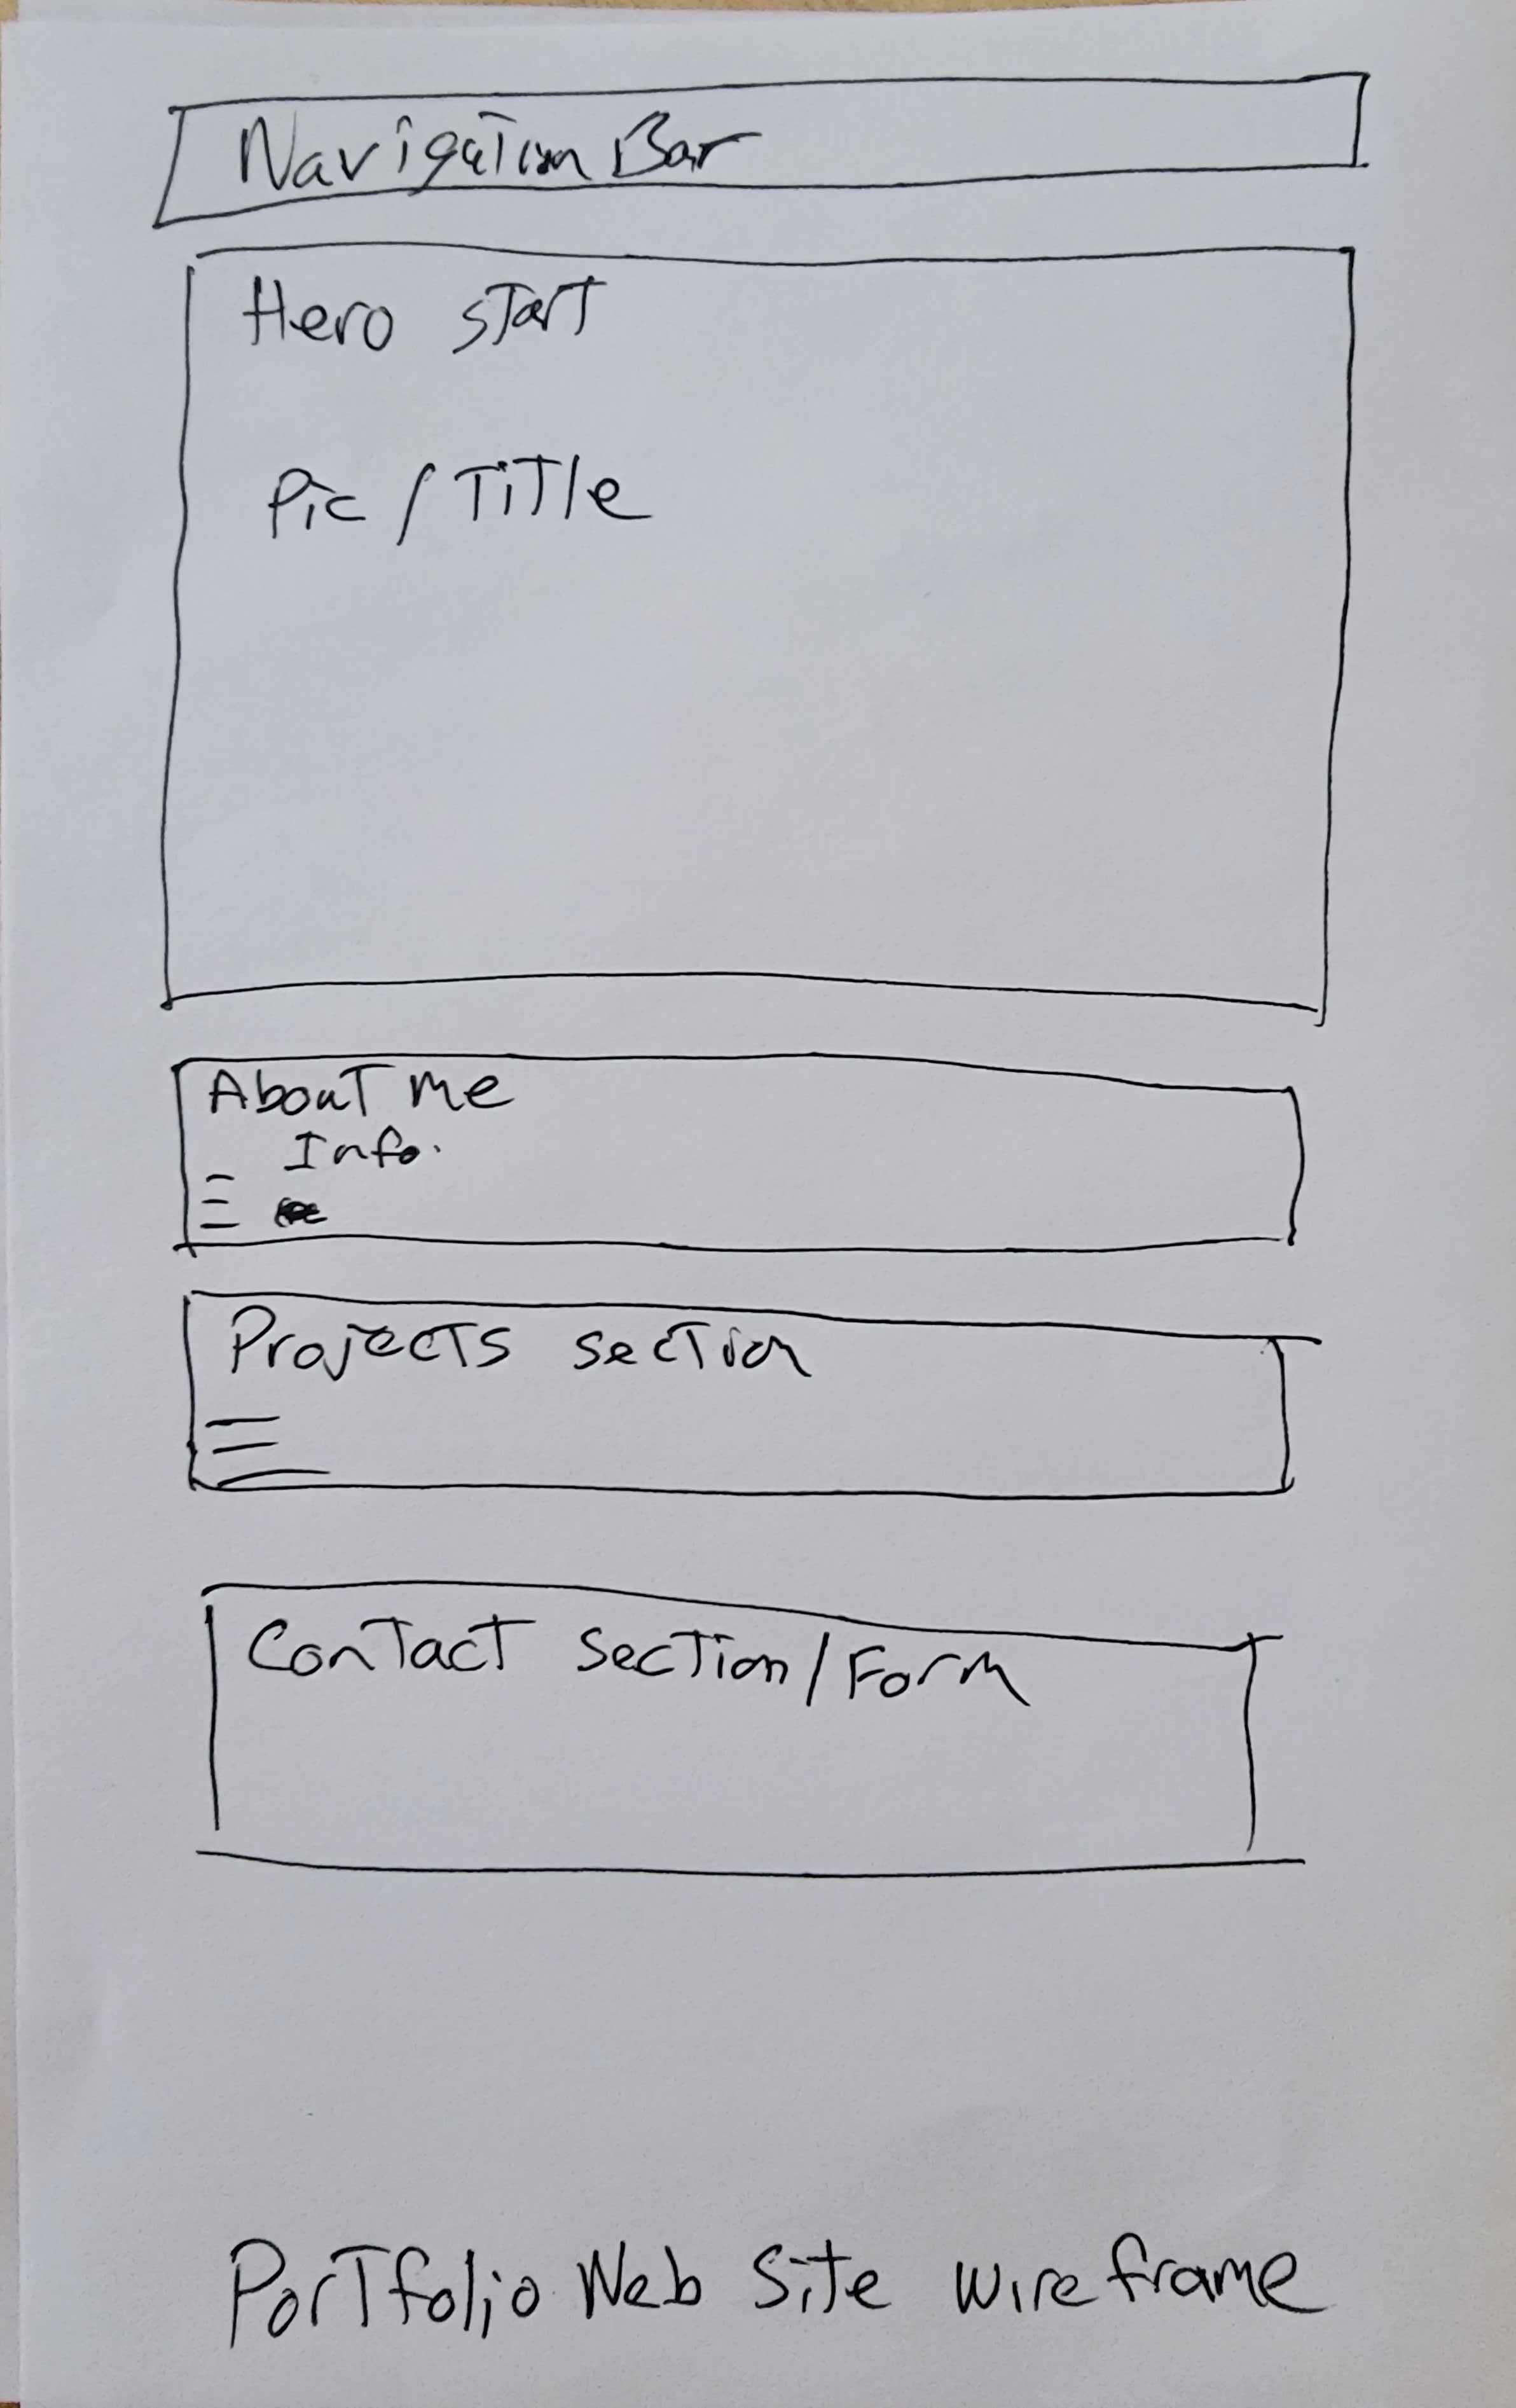 Navigation Bar
Hero start
Pic / Title
About me
Info.
Projects section
Contact section / Form
Portfolio Web Site wireframe